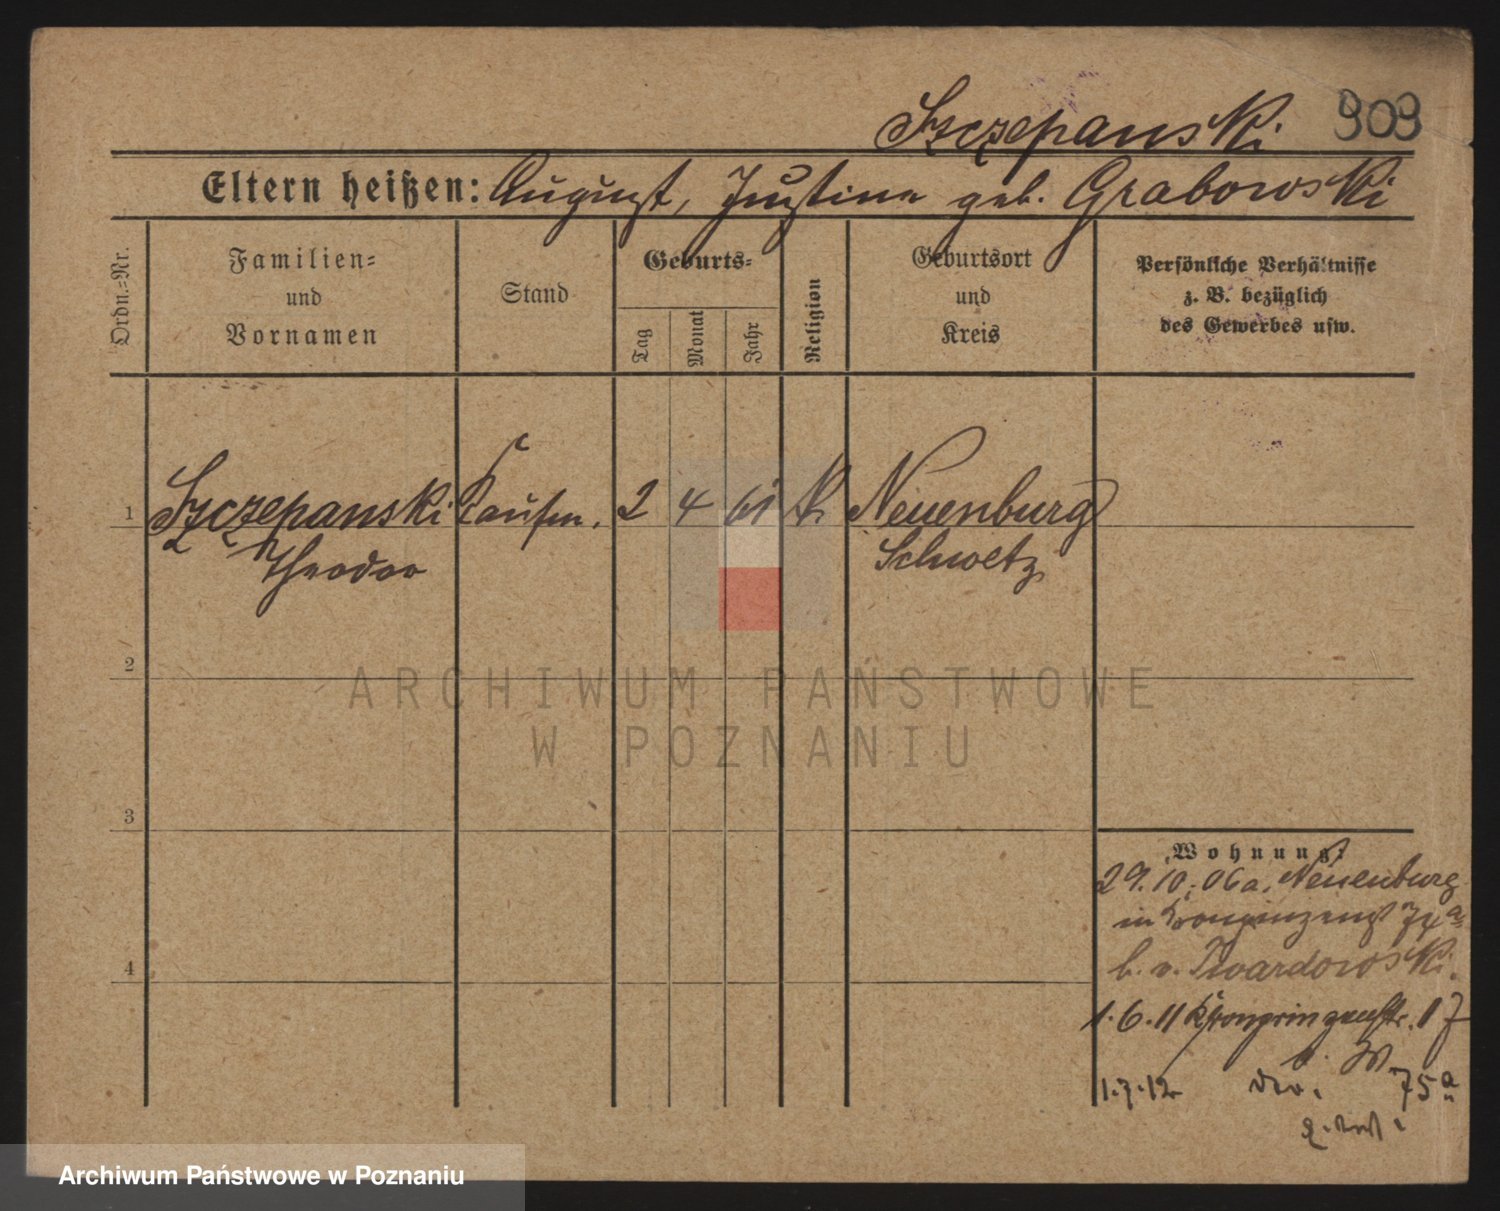 Szczepanski 909
Eltern heißen: August, Justine geb. Grabowski
Ordn.-Nr.
Familien- und Vornamen
Stand
Geburts-
Tag
Monat
Jahr
Religion
Geburtsort und Kreis
Persönliche Verhältnisse
z. B. bezüglich
des Gewerbes usw.
1 Szczepanski Kaufm. 2 4 61 k. Neuenburg
Theodor Schwetz
2
ARCHIWUM PAŃSTWOWE
W POZNANIU
3
Wohnung:
29.10.06 a. Neuenburg
in Kronprinzenst 74a
b. v. Twardowski.
4
1.6.11 Kronprinzenstr. 17
b. W.
1.7.12 75a
Archiwum Państwowe w Poznaniu